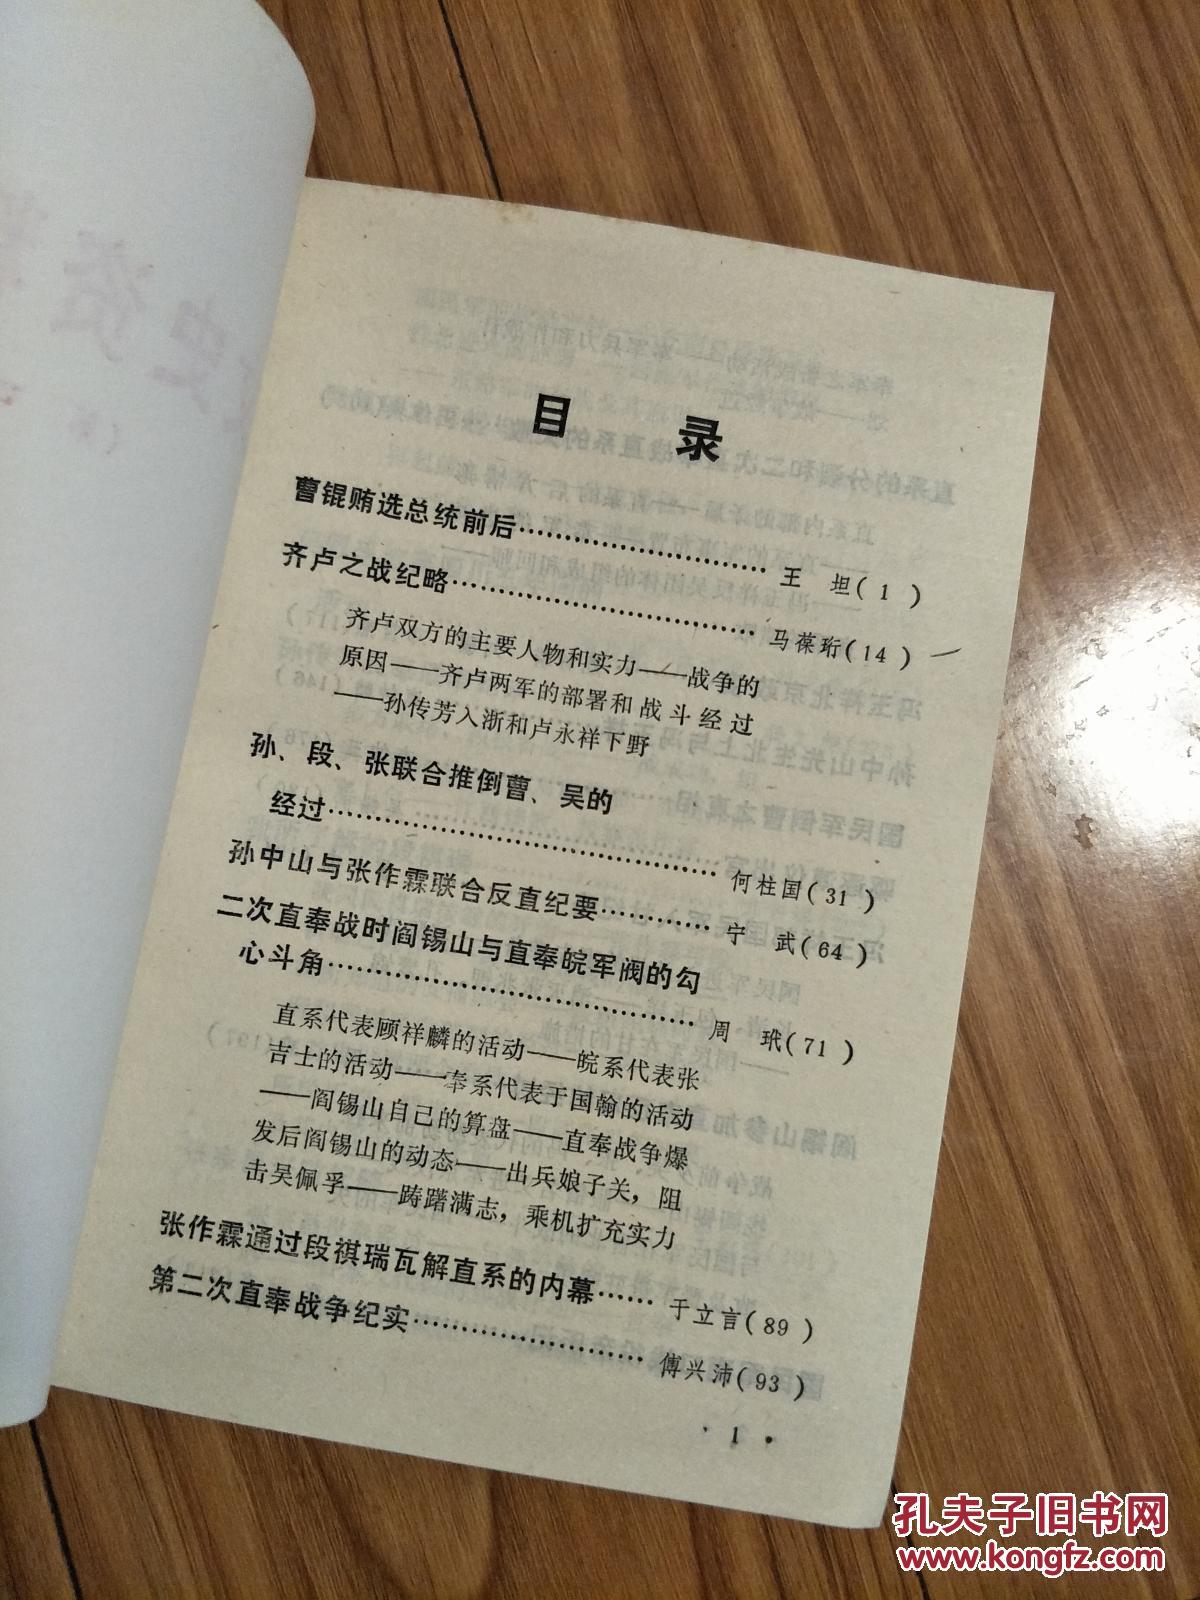 目 录
曹锟贿选总统前后………………………王 坦(1)
齐卢之战纪略……………………………马葆珩(14)
齐卢双方的主要人物和实力——战争的
原因——齐卢两军的部署和战斗经过
——孙传芳入浙和卢永祥下野
孙、段、张联合推倒曹、吴的
经过……………………………………何柱国(31)
孙中山与张作霖联合反直纪要…………宁 武(64)
二次直奉战时阎锡山与直奉皖军阀的勾
心斗角…………………………………周 玳(71)
直系代表顾祥麟的活动——皖系代表张
吉士的活动——奉系代表于国翰的活动
——阎锡山自己的算盘——直奉战争爆
发后阎锡山的动态——出兵娘子关，阻
击吴佩孚——踌躇满志，乘机扩充实力
张作霖通过段祺瑞瓦解直系的内幕……于立言(89)
第二次直奉战争纪实……………………傅兴沛(93)
· 1 ·
孔夫子旧书网
www.kongfz.com